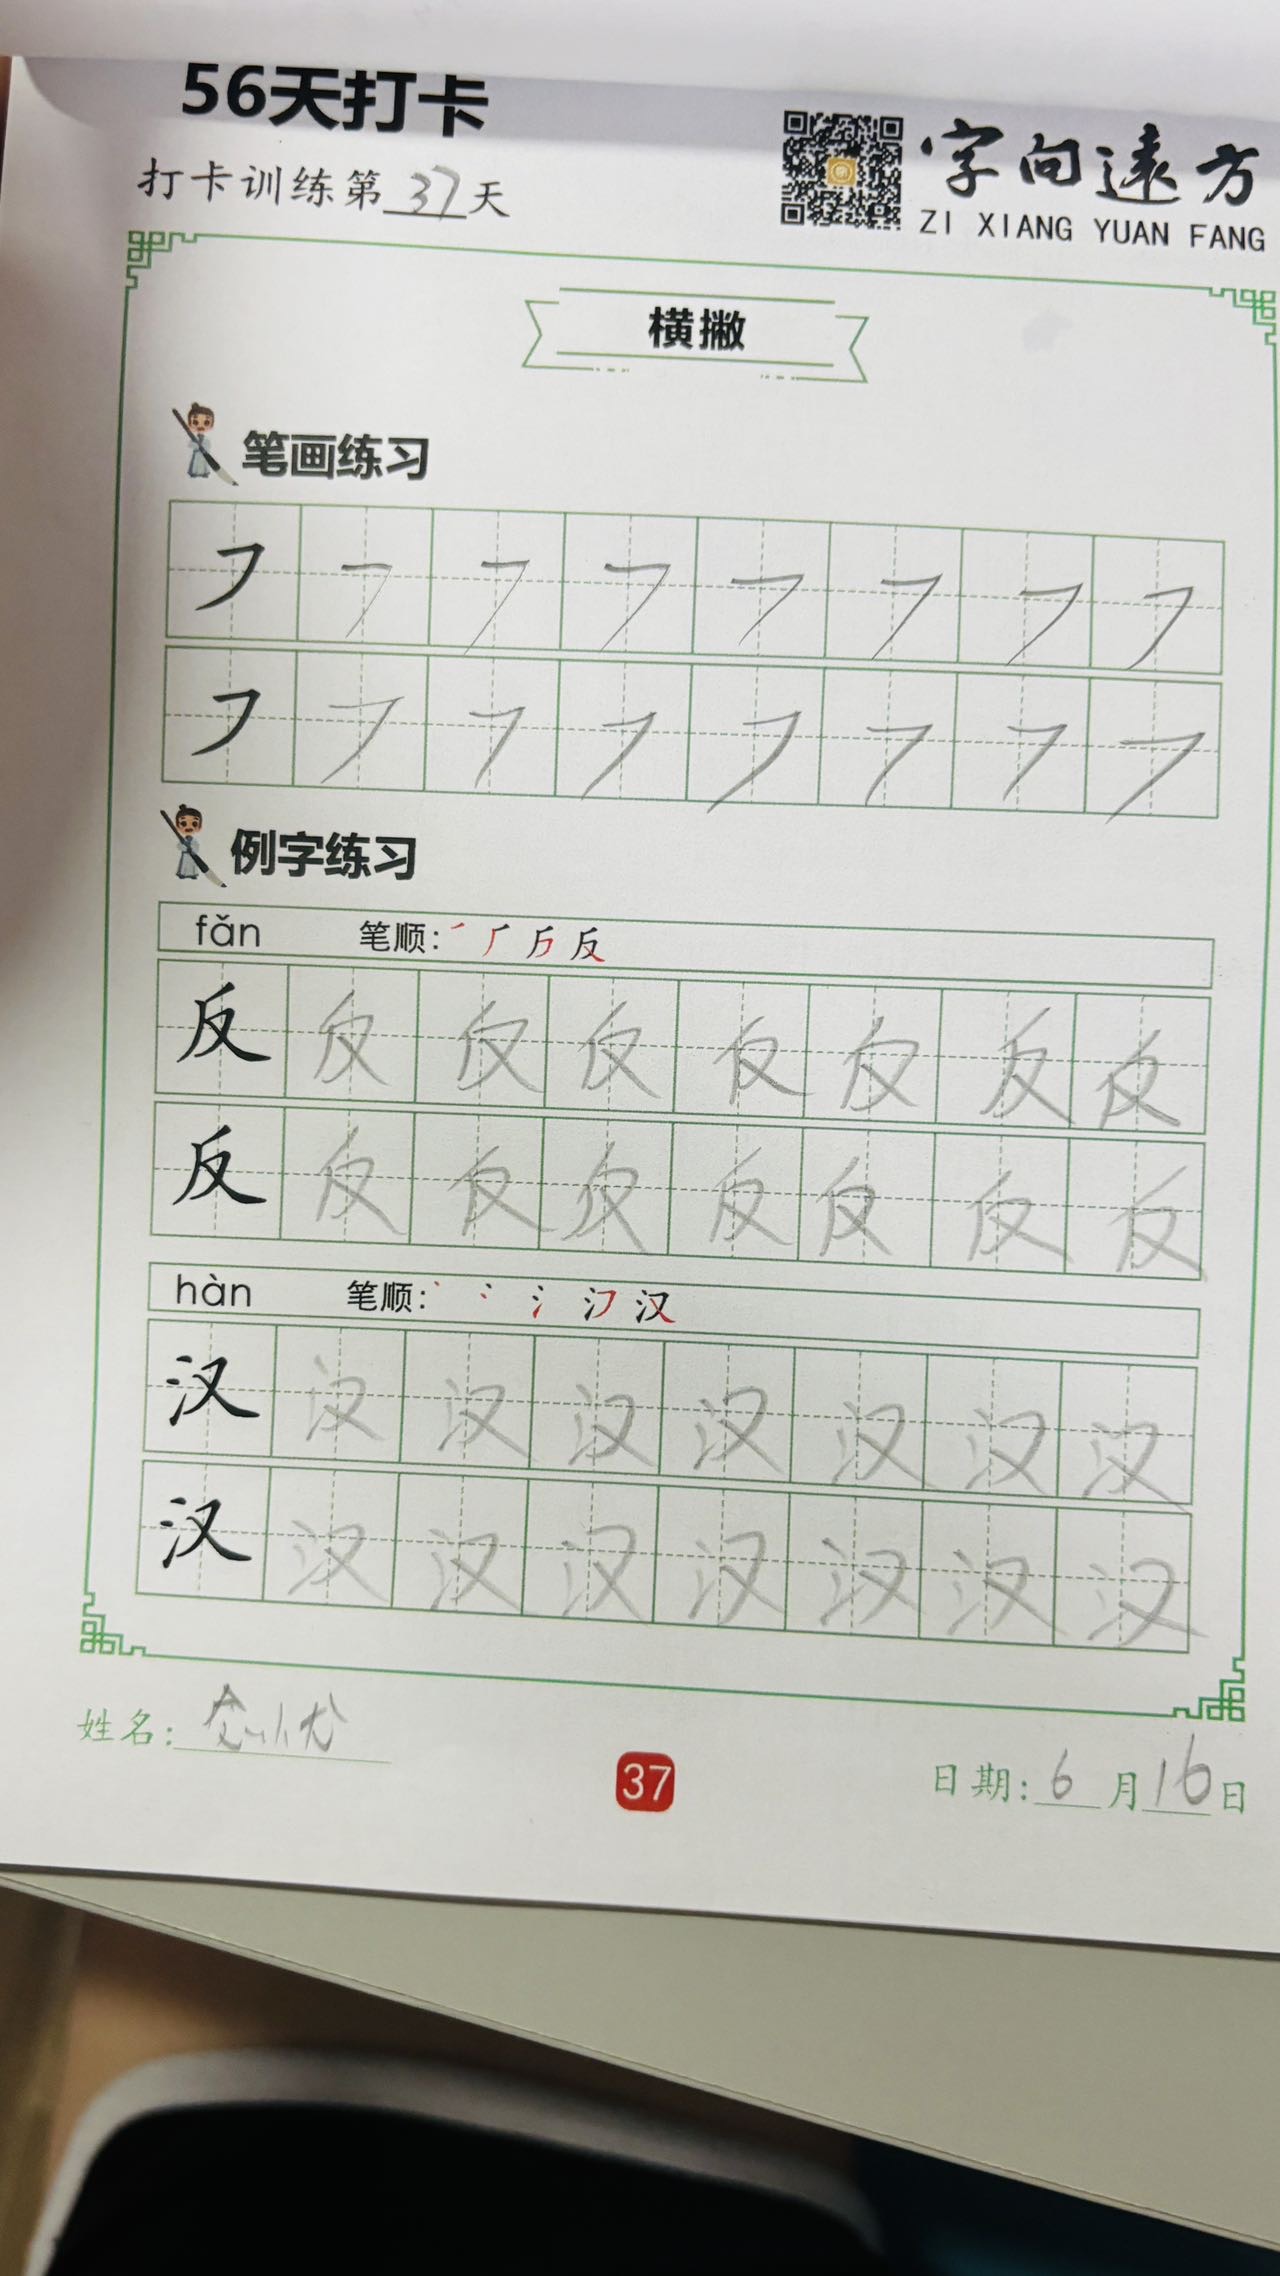 56天打卡
打卡训练第37天
字向遠方
ZI XIANG YUAN FANG
横撇
笔画练习
㇇ ㇇ ㇇ ㇇ ㇇ ㇇ ㇇ ㇇
㇇ ㇇ ㇇ ㇇ ㇇ ㇇ ㇇ ㇇
例字练习
fǎn 笔顺: 反
反 反 反 反 反 反 反 反
反 反 反 反 反 反 反 反
hàn 笔顺: 汉
汉 汉 汉 汉 汉 汉 汉 汉
汉 汉 汉 汉 汉 汉 汉 汉
姓名:
37
日期: 6月16日